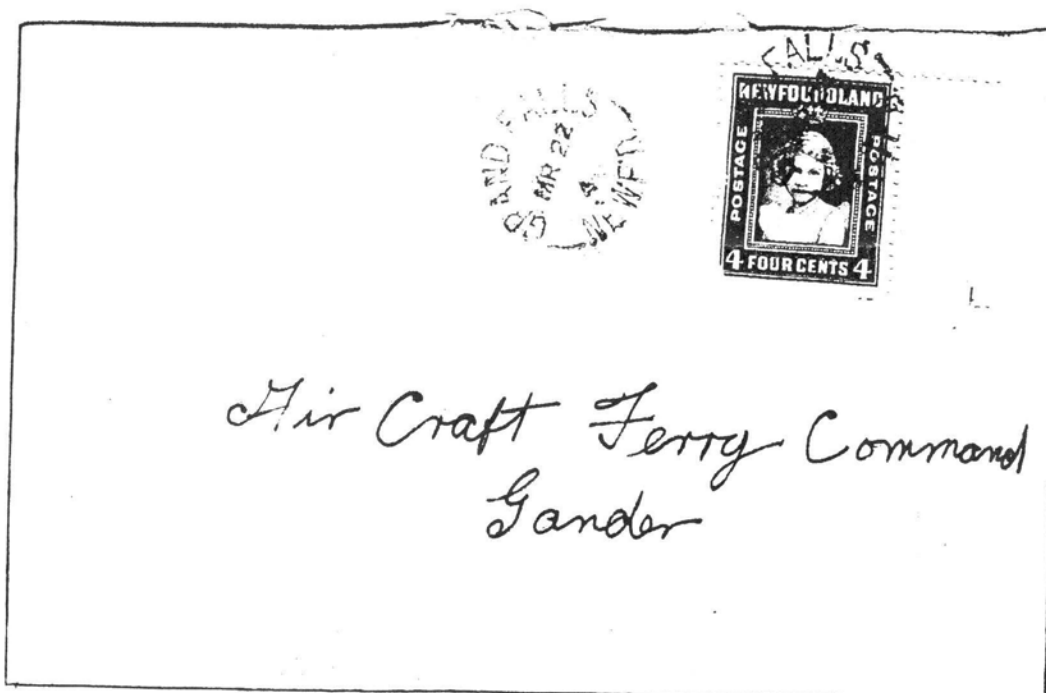 GRAND FALLS
MR 22
4
NEWF'D
FALLS
NEWFOUNDLAND
POSTAGE
POSTAGE
4 FOUR CENTS 4
Air Craft Ferry Command
Gander